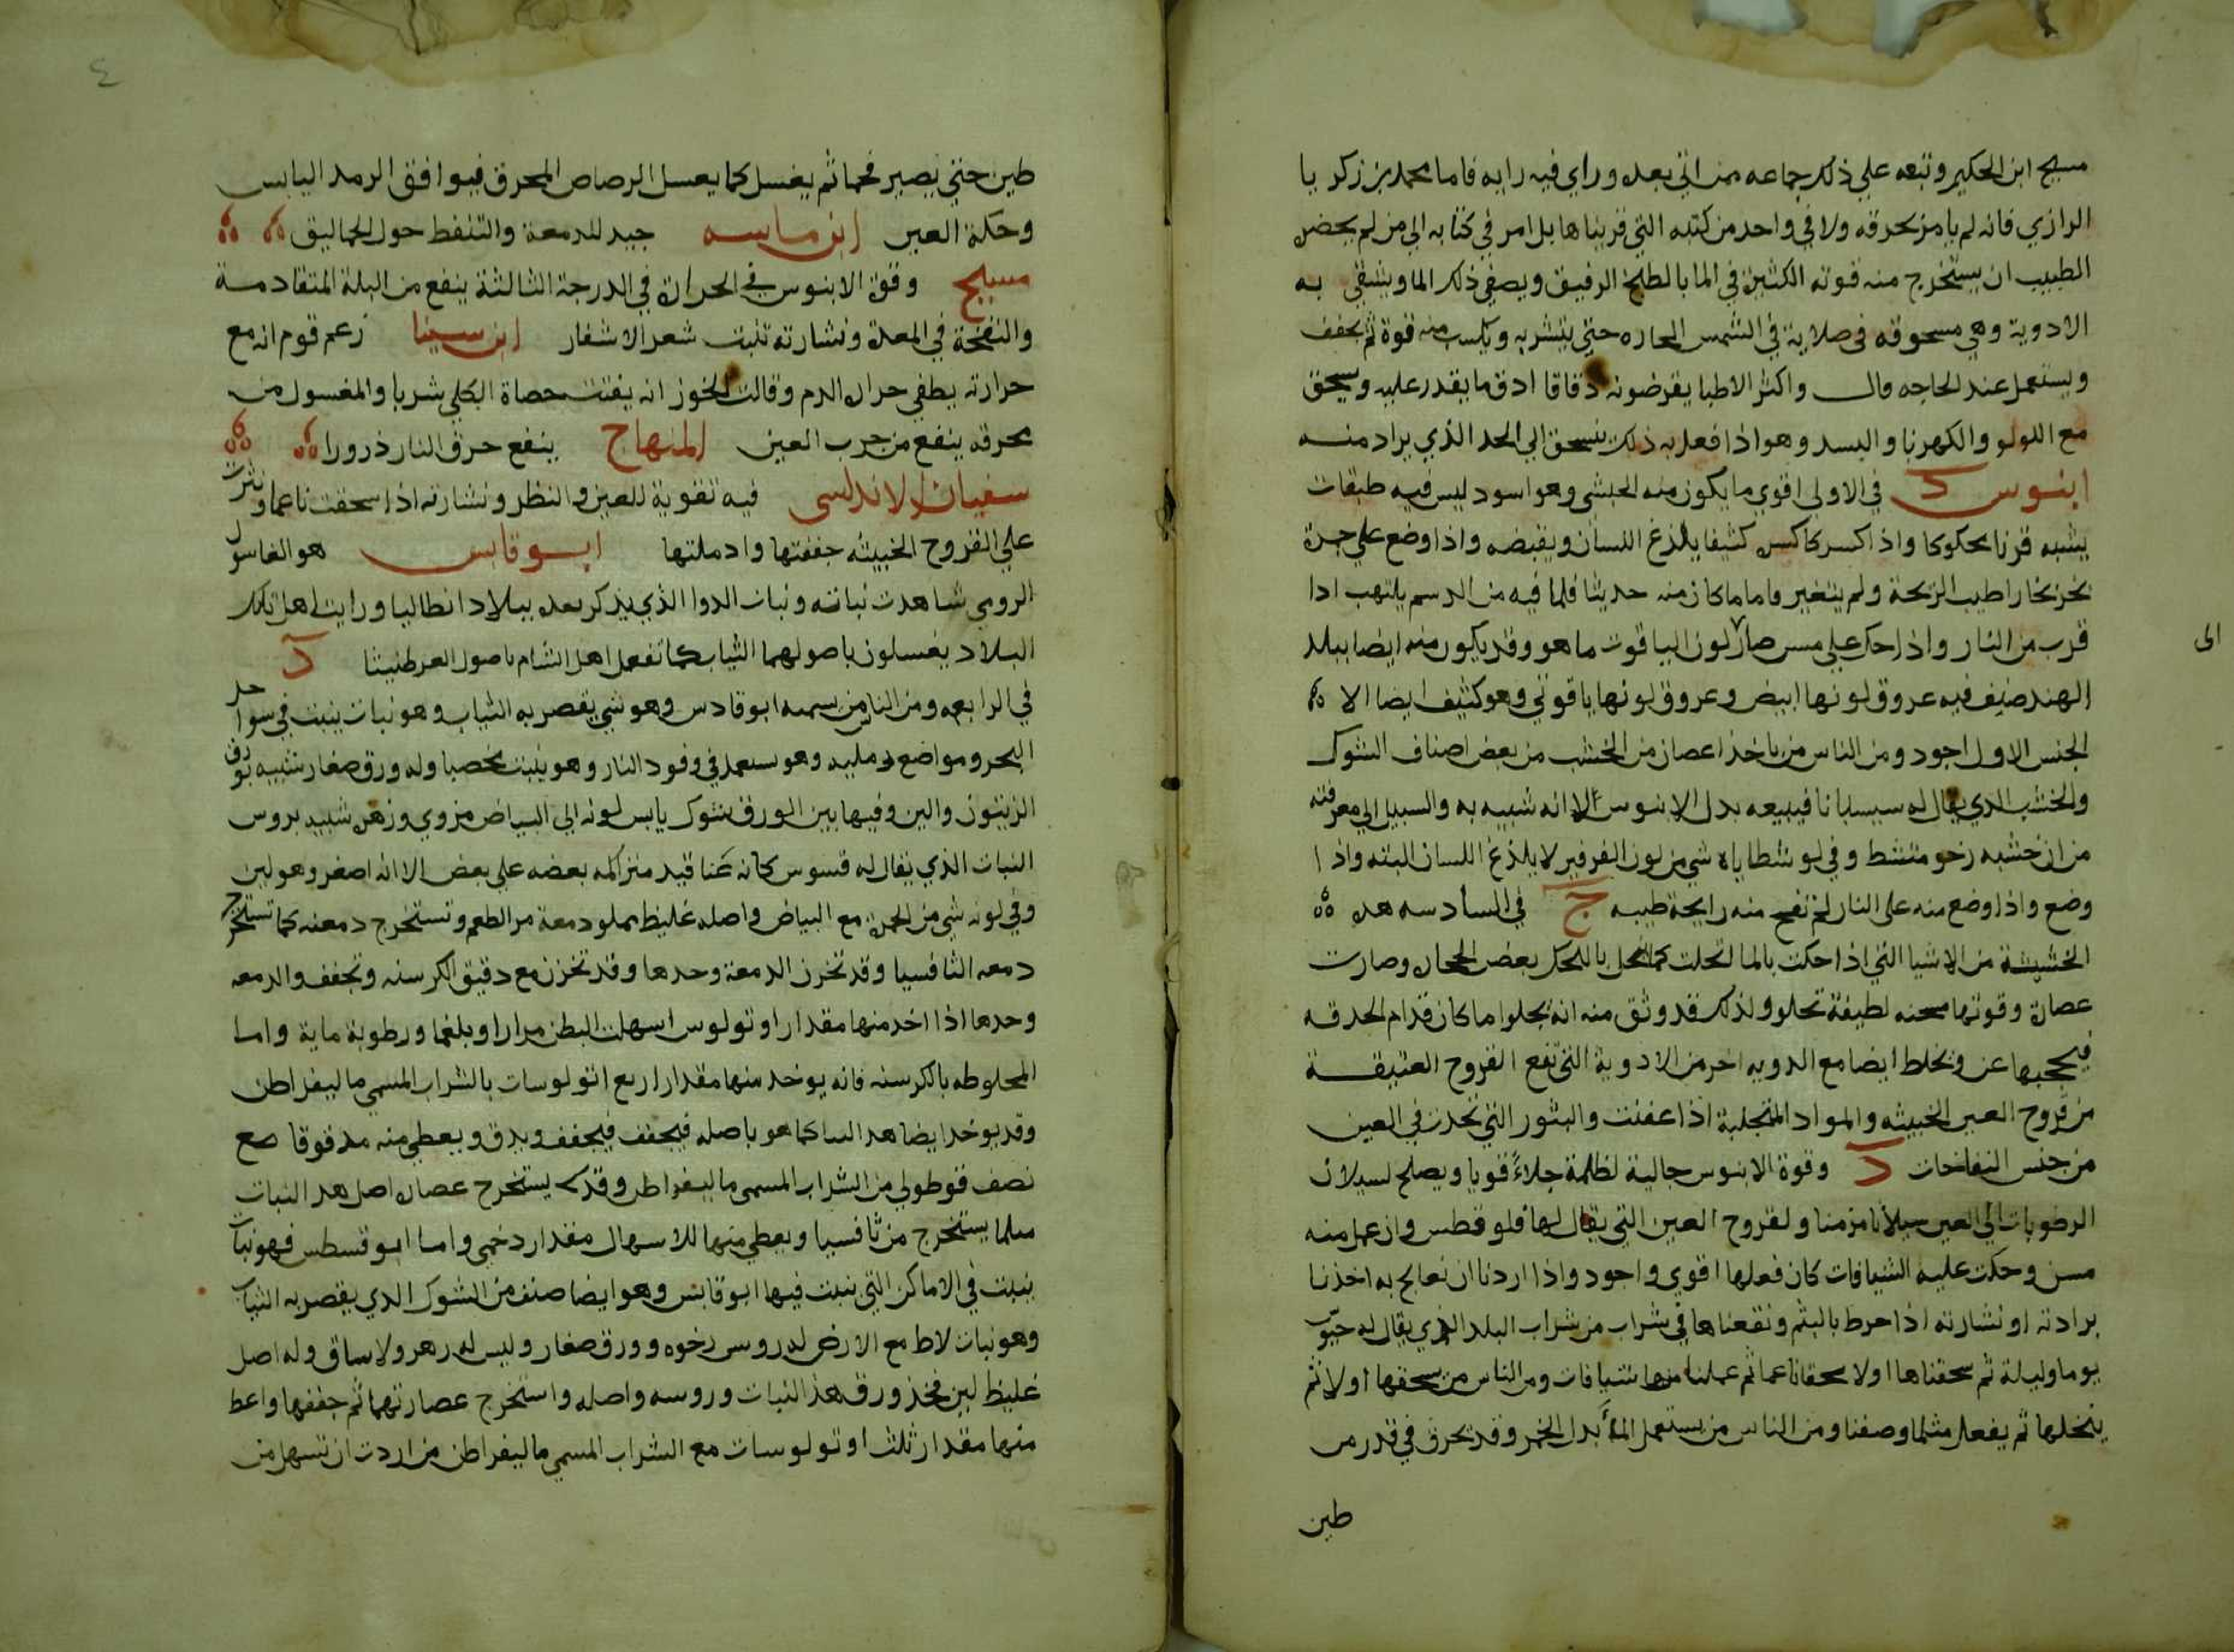 مسيح ابن الحكيم وتبعه علي ذلك جماعه ممن اتي بعده وراي فيه رايه فاما محمد بن زكريا
الرازي فانه لم يامر بحرقه ولا في واحد من كتبه التي قريناها بل امر في كتابه الي من لم يحضره
الطبيب ان يستخرج منه قوته الكثيرة في الما بالطبخ الرفيق ويصفي ذلك الما ويسقي به
الادوية وهي مسحوقه في صلاية في الشمس الحاره حتي يتشربه ويكسب منه قوة ثم يجفف
ويستعمل عند الحاجه قال واكثر الاطبا يقرضونه دقاقا ادق ما يقدر عليه ويسحق
مع اللولو والكهربا والبسد وهو اذا فعل به ذلك ينسحق الي الحد الذي يراد منه
ابنوس د في الاولي اقوي ما يكون منه الحبشي وهو اسود ليس فيه طبقات
يشبه قرنا محكوكا واذا كسر كان كسره كثيفا يلذع اللسان ويقبضه واذا وضع علي جمرة
بخر بخارا طيب الرائحة ولم يتغير واما ما كان منه حديثا فلما فيه من الدسم يلتهب اذا
قرب من النار واذا حك علي مسن صار لون الياقوت ما هو وقد يكون منه ايضا ببلد
الي
الهند صنف فيه عروق لونها ابيض وعروق لونها ياقوتي وهو كثيف ايضا الا ان
الجنس الاول اجود ومن الناس من ياخذ اعصان من الخشب من بعض اصناف الشوك
والخشب الذي يقال له سيسبانا فيبيعه بدل الابنوس الا انه شبيه به والسبيل الي معرفته
من ان خشبه رخو متشظ وفي لون شظاياه شي من لون الفرفير لا يلذع اللسان البته واذا
وضع واذا وضع منه علي النار لم تفح منه رايحة طيبه ج في السادسه هذه
الخشبة من الاشيا التي اذا حكت بالما انحلت كما تنحل بالحك بعض الحجاره وصارت
عصارة وقوتها مسحنه لطيفة تجلو ولذلك قد وثق منه انه يجلوا ما كان قدام الحدقه
فيحجبها عن ويخلط ايضا مع الدويه اخر من الادوية التي تنفع القروح العتيقة
من قروح العين الخبيثه والمواد المتجلبة اذا عفنت والبثور التي تحدث في العين
من جنس النفاخات د وقوة الابنوس جالية لظلمة جلاءً قويا ويصلح لسيلان
الرطوبات الي العين سيلانا مزمنا ولقروح العين التي يقال لها فلوقطس وان عمل منه
مسن وحكت عليه الشيافات كان فعلها اقوي واجود واذا اردنا ان نعالج به اخذنا
برادته او نشارته اذا خرط بالبشم ونقعناها في شراب من شراب البلد الذي يقال له حيوب
يوما وليلة ثم سحقناها اولا سحقا ناعما ثم عملنا منها شيافات ومن الناس من يسحقها اولا ثم
ينخلها ثم يفعل مثلما وصفنا ومن الناس من يستعمل الماء بدل الخمر وقد يحرق في قدر من
طين
٤
طين حتي يصير فحما ثم يغسل كما يغسل الرصاص المحرق فيوافق الرمد اليابس
وحكة العين ابن ماسه جيد للدمعة والتنفط حول الحماليق
مسيح وقوة الابنوس في الحرارة في الدرجة الثالثة ينفع من البلة المتقادمة
والنفخة في المعدة ونشارته تنبت شعر الاشفار ابن سينا زعم قوم انه مع
حرارته يطفي حرارة الدم وقالت الخوز انه يفتت حصاة الكلي شربا والمغسول من
محرقه ينفع من جرب العين المنهاج ينفع حرق النار ذرورا
سفيان الاندلسي فيه تقوية للعين والنظر ونشارته اذا سحقت ناعما ونثرت
علي القروح الخبيثه جففتها وادملتها ابوقابس هو الغاسول
الرومي شاهدت نباته ونبات الدوا الذي يذكر بعده ببلاد انطاليا ورايت اهل تلك
البلاد يغسلون باصولهما الثياب كما تفعل اهل الشام باصول العرطنيثا د
في الرابعه ومن الناس من يسمه ابوقادس وهو شي يقصر به الثياب وهو نبات ينبت في سواحل
البحر ومواضع رمليه وهو يستعمل في وقود النار وهو ينبت مخصبا وله ورق صغار شبيه بورق
الزيتون والين وفيها بين الورق شوك يابس لونه الي البياض مزوي وزهره شبيه بروس
النبات الذي يقال له قسوس كانه عناقيد متراكمه بعضه علي بعض الا انه اصغر وهو لين
وفي لونه شي من الحمرة مع البياض واصله غليظ مملو دمعة مر الطعم وتستخرج دمعته كما تستخرج
دمعه الثافسيا وقد تخزن الدمعة وحدها وقد تخزن مع دقيق الكرسنه وتجفف والدمعه
وحدها اذا اخذ منها مقدار اوتولوس اسهلت البطن مرارا وبلغما ورطوبة ماية واما
المخلوطه بالكرسنه فانه يوخذ منها مقدار اربع اتولوسات بالشراب المسمي ماليقراطن
وقد يوخذ ايضا هذا النبات كما هو باصله فيجفف فيجفف ويدق ويعطي منه مدقوقا مع
نصف قوطولي من الشراب المسمي ماليقراطن وقد يستخرج عصارة اصل هذا النبات
مثلما يستخرج من ثافسيا ويعطي منها للاسهال مقدار درخمي واما ابوقسطس فهو نبات
ينبت في الاماكن التي ينبت فيها ابوقابس وهو ايضا صنف من الشوك الذي يقصر به الثياب
وهو نبات لاط مع الارض له روس رخوه وورق صغار وليس له زهر ولا ساق وله اصل
غليظ لين فخذ ورق هذا النبات وروسه واصله واستخرج عصارتهما ثم جففها واعط
منها مقدار ثلث اوتولوسات مع الشراب المسمي ماليقراطن من اردت ان تسهل من